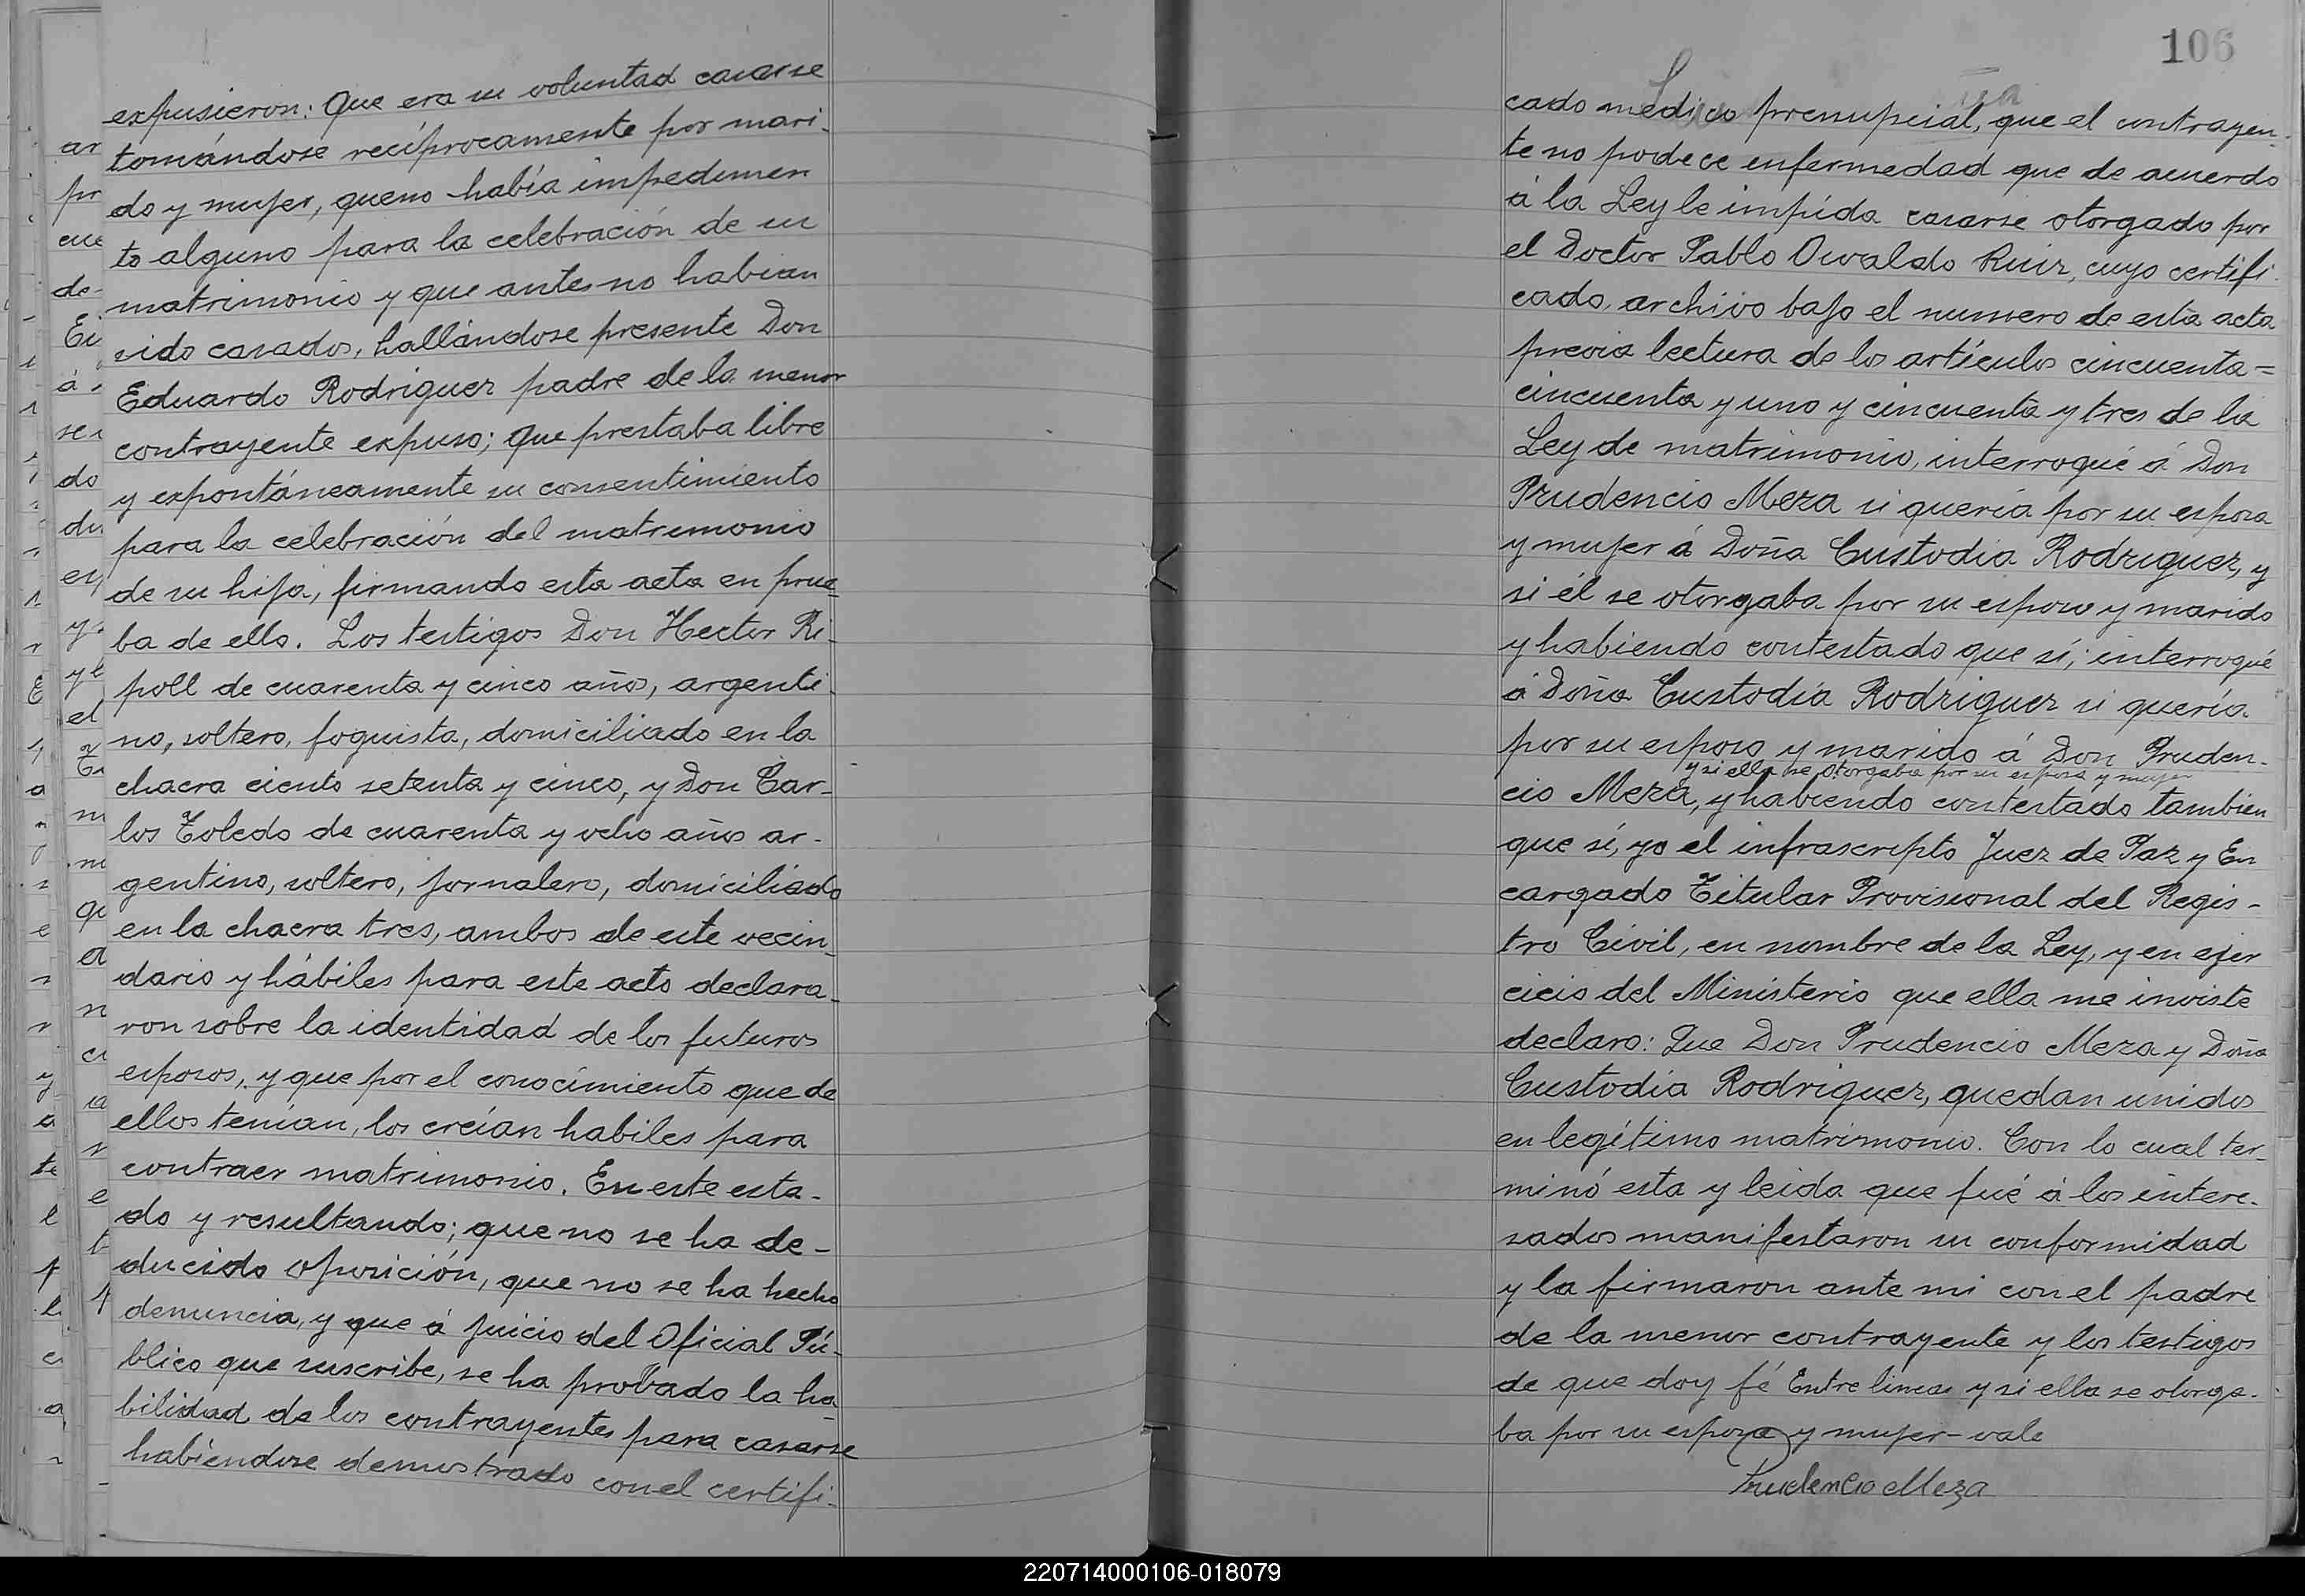 expusieron: Que era su voluntad casarse
tomándose recíprocamente por mari-
do y mujer, que no había impedimen
to alguno para la celebración de su
matrimonio y que antes no habían
sido casados, hallándose presente Don
Eduardo Rodriguez padre de la menor
contrayente expuso; que prestaba libre
y expontáneamente su consentimiento
para la celebración del matrimonio
de su hija, firmando esta acta en prue-
ba de ello. Los testigos Don Hector Ri-
poll de cuarenta y cinco años, argenti-
no, soltero, foguista, domiciliado en la
chacra ciento setenta y cinco, y Don Car-
los Toledo de cuarenta y ocho años ar-
gentino, soltero, jornalero, domiciliado
en la chacra tres, ambos de este vecin-
dario y hábiles para este acto declara-
ron sobre la identidad de los futuros
esposos, y que por el conocimiento que de
ellos tenían, los creían habiles para
contraer matrimonio. En este esta-
do y resultando; que no se ha de-
ducido oposición, que no se ha hecho
denuncia, y que á juicio del Oficial Pú-
blico que suscribe, se ha probado la ha-
bilidad de los contrayentes para casarse
habiéndose demostrado con el certifi-
106
cado medico prenupcial, que el contrayen-
te no padece enfermedad que de acuerdo
á la Ley le impida casarse otorgado por
el Doctor Pablo Oswaldo Ruiz, cuyo certifi-
cado, archivo bajo el numero de esta acta
previa lectura de los artículos cincuenta=
cincuenta y uno y cincuenta y tres de la
Ley de matrimonio, interrogué á Don
Prudencio Meza si quería por su esposa
y mujer á Doña Custodia Rodriguez, y
si él se otorgaba por su esposo y marido
y habiendo contestado que sí; interrogué
á Doña Custodia Rodriguez si quería
por su esposo y marido á Don Pruden-
y si ella se otorgaba por su esposa y mujer
cio Meza, y habiendo contestado tambien
que sí, yo el infrascripto Juez de Paz y En
cargado Titular Provisional del Regis-
tro Civil, en nombre de la Ley, y en ejer
cicio del Ministerio que ella me inviste
declaro: Que Don Prudencio Meza y Doña
Custodia Rodriguez, quedan unidos
en legítimo matrimonio. Con lo cual ter-
minó esta y leida que fué á los intere-
sados manifestaron su conformidad
y la firmaron ante mi con el padre
de la menor contrayente y los testigos
de que doy fé Entre lineas y si ella se otorga-
ba por su esposa y mujer-vale
Prudencio Meza
220714000106-018079